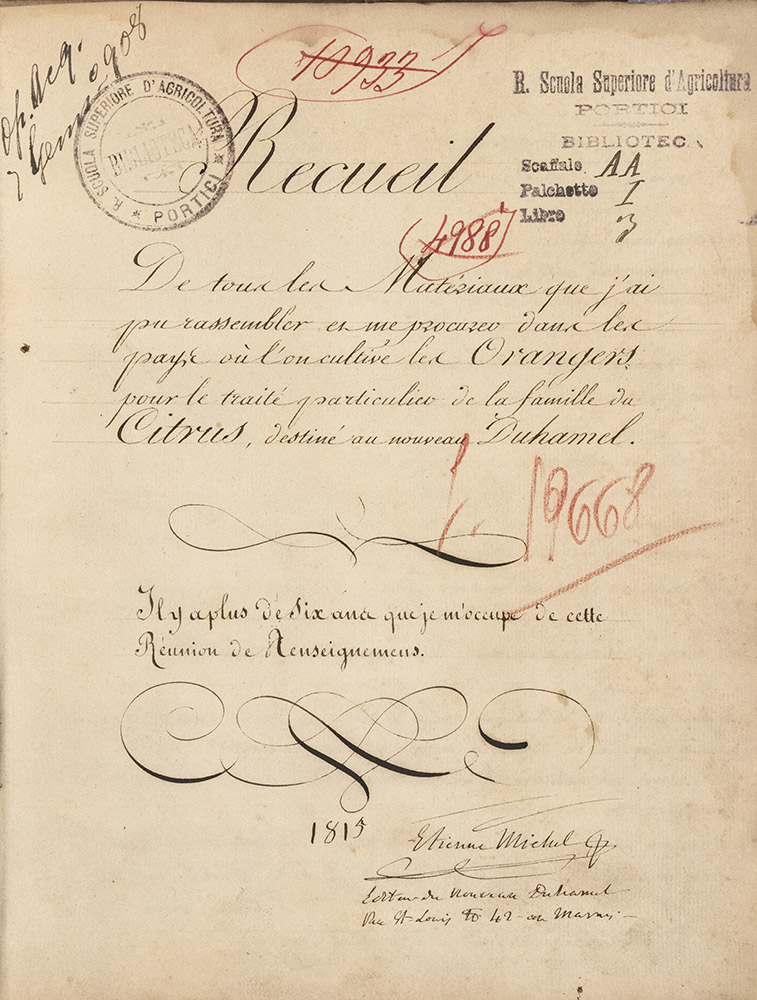 Op. Acq.
7 Genn. 908
10933
R. SCUOLA SUPERIORE D'AGRICOLTURA
BIBLIOTECA
* PORTICI *
R. Scuola Superiore d'Agricoltura
PORTICI
BIBLIOTEC
Scaffale AA
Palchetto I
Libro 3
Recueil
(4988)
De tous les Matériaux que j'ai
pu rassembler et me procurer dans les
pays où l'on cultive les Orangers
pour le traité particulier de la famille du
Citrus, destiné au nouveau Duhamel.
19668
Il y a plus de six ans que je m'occupe de cette
Réunion de Renseignemens.
1815
Etienne Michel
Editeur du Nouveau Duhamel
Rue St Louis No 42 au Marais